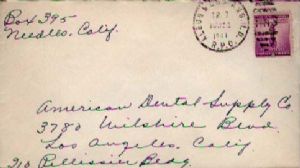 Box 395
Needles, Calif.
R.P.O.
American Dental Supply Co
3780 Wilshire Blvd.
Los Angeles, Calif
210 Pellissier Bldg.